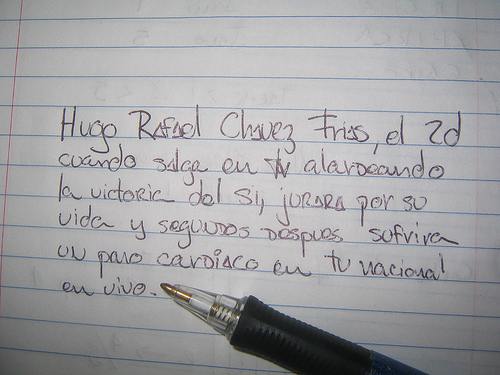 Hugo Rafael Chavez Frias, el 2d
cuando salga en tv alardeando
la victoria del si, jurara por su
vida y segundos despues sufrira
un paro cardiaco en tv nacional
en vivo.